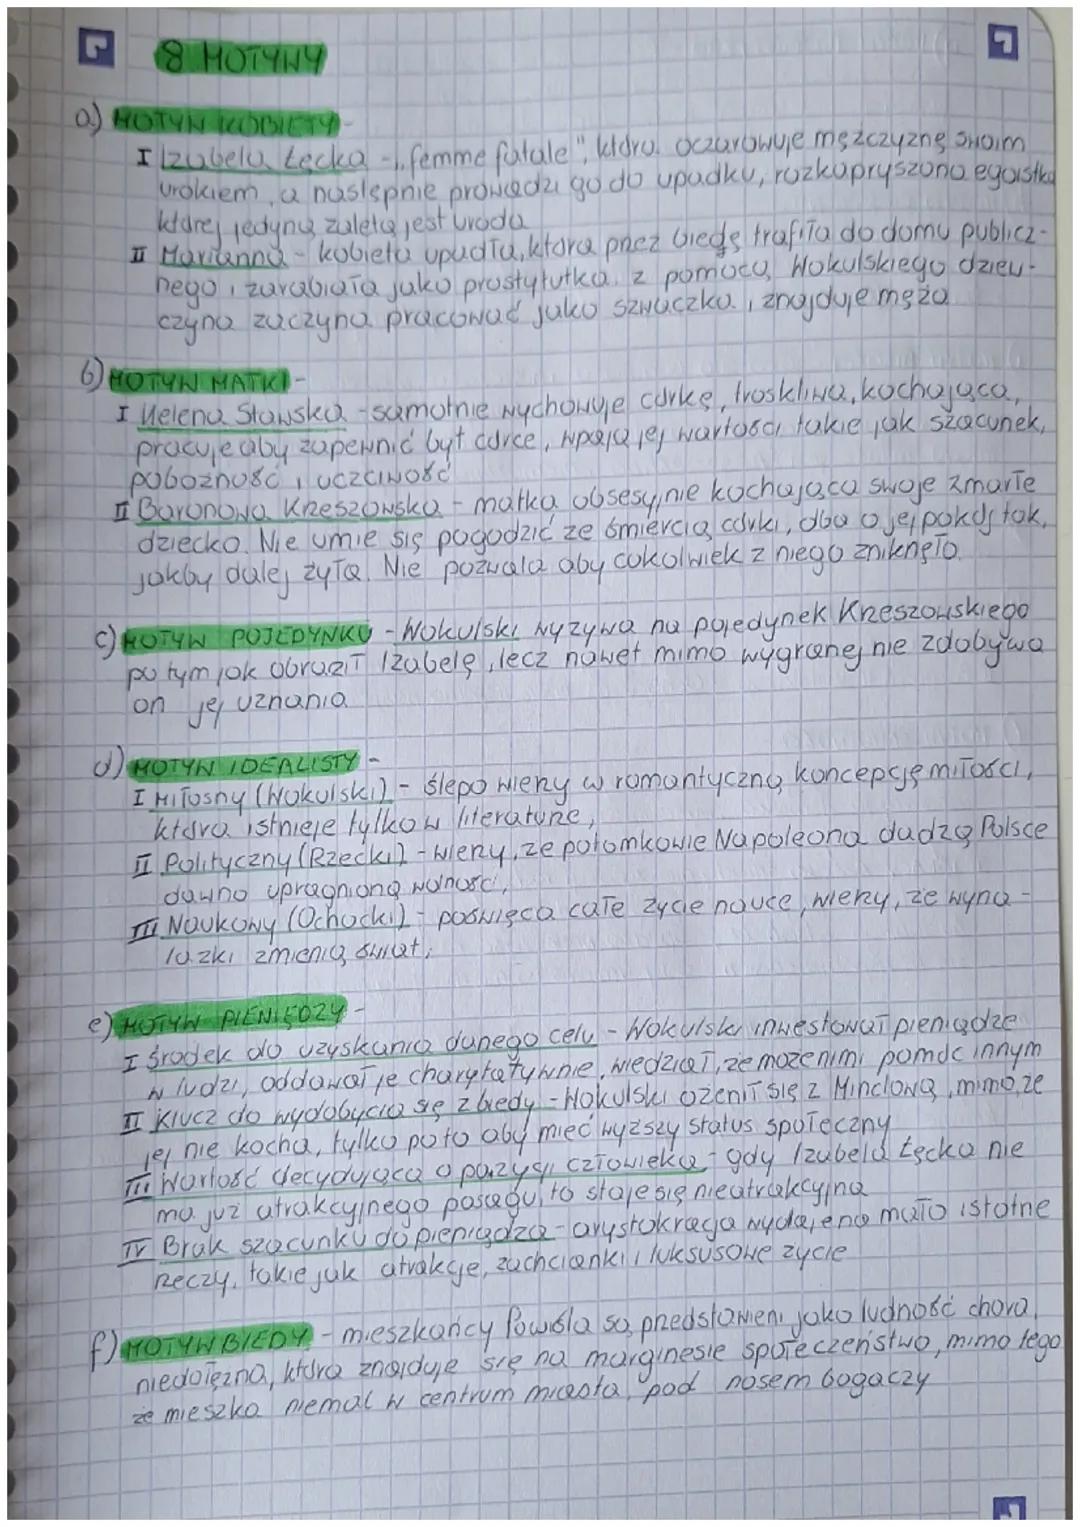 8 MOTYWY
a) MOTYW KOBIETY -
I Izabela Łęcka - „femme fatale", która oczarowuje mężczyznę swoim
urokiem, a następnie prowadzi go do upadku, rozkapryszona egoistka
której jedyną zaletą jest uroda
II Marianna - kobieta upadła, która przez biedę trafiła do domu publicz-
nego i zarabiała jako prostytutka. z pomocą Wokulskiego dziew-
czyna zaczyna pracować jako szwaczka i znajduje męża
b) MOTYW MATKI -
I Helena Stawska - samotnie wychowuje córkę, troskliwa, kochająca,
pracuje aby zapewnić byt córce, wpaja jej wartości takie jak szacunek,
pobożność i uczciwość
II Baronowa Krzeszowska - matka obsesyjnie kochająca swoje zmarłe
dziecko. Nie umie się pogodzić ze śmiercią córki, dba o jej pokój tak,
jakby dalej żyła. Nie pozwala aby cokolwiek z niego zniknęło.
c) MOTYW POJEDYNKU - Wokulski wyzywa na pojedynek Krzeszowskiego
po tym jak obraził Izabelę, lecz nawet mimo wygranej nie zdobywa
on jej uznania
d) MOTYW IDEALISTY -
I Miłosny (Wokulski) - ślepo wierzy w romantyczną koncepcję miłości,
która istnieje tylko w literaturze,
II Polityczny (Rzecki) - wierzy, że potomkowie Napoleona dadzą Polsce
dawno upragnioną wolność,
III Naukowy (Ochocki) - poświęca całe życie nauce, wierzy, że wyna-
lazki zmienią świat,
e) MOTYW PIENIĘDZY -
I Środek do uzyskania danego celu - Wokulski inwestował pieniądze
w ludzi, oddawał je charytatywnie, wiedział, że może nimi pomóc innym
II Klucz do wydobycia się z biedy - Wokulski ożenił się z Minclową, mimo, że
jej nie kocha, tylko po to aby mieć wyższy status społeczny
III Wartość decydująca o pozycji człowieka - gdy Izabela Łęcka nie
ma już atrakcyjnego posagu, to staje się nieatrakcyjna
IV Brak szacunku do pieniądza - arystokracja wydaje na mało istotne
rzeczy, takie jak atrakcje, zachcianki i luksusowe życie
f) MOTYW BIEDY - mieszkańcy Powiśla są przedstawieni jako ludność chora,
niedołężna, która znajduje się na marginesie społeczeństwo, mimo tego
że mieszka niemal w centrum miasta, pod nosem bogaczy